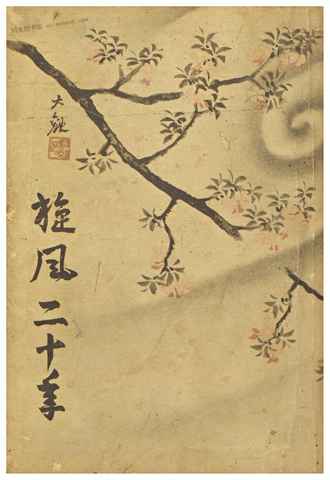 大観
旋風二十年